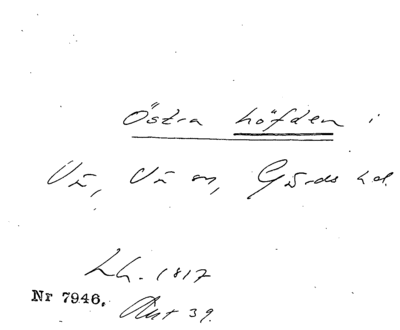 Östra höfden i
Vä, Vä sn, Gärds hd.
Lh. 1817
Nr 7946. Akt 39.